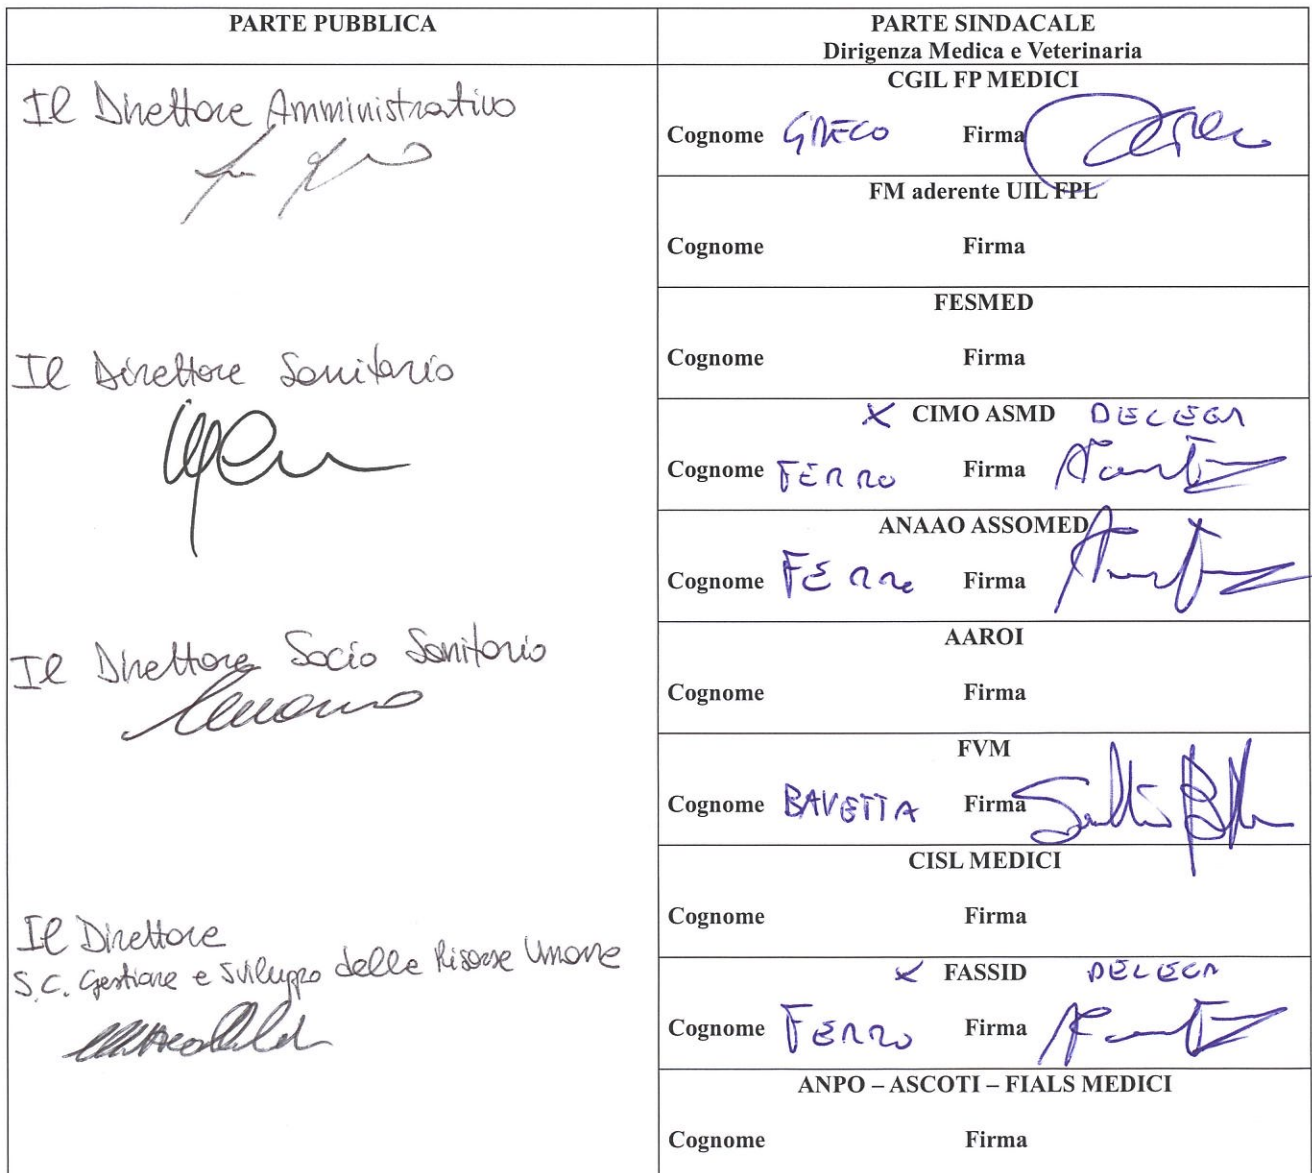 PARTE PUBBLICA
Il Direttore Amministrativo
Il Direttore Sanitario
Il Direttore Socio Sanitario
Il Direttore
S.C. Gestione e Sviluppo delle Risorse Umane
PARTE SINDACALE
Dirigenza Medica e Veterinaria
CGIL FP MEDICI
Cognome GRECO Firma
FM aderente UIL FPL
Cognome Firma
FESMED
Cognome Firma
X CIMO ASMD DELEGA
Cognome FERRO Firma
ANAAO ASSOMED
Cognome FERRO Firma
AAROI
Cognome Firma
FVM
Cognome BAVETTA Firma
CISL MEDICI
Cognome Firma
X FASSID DELEGA
Cognome FERRO Firma
ANPO – ASCOTI – FIALS MEDICI
Cognome Firma